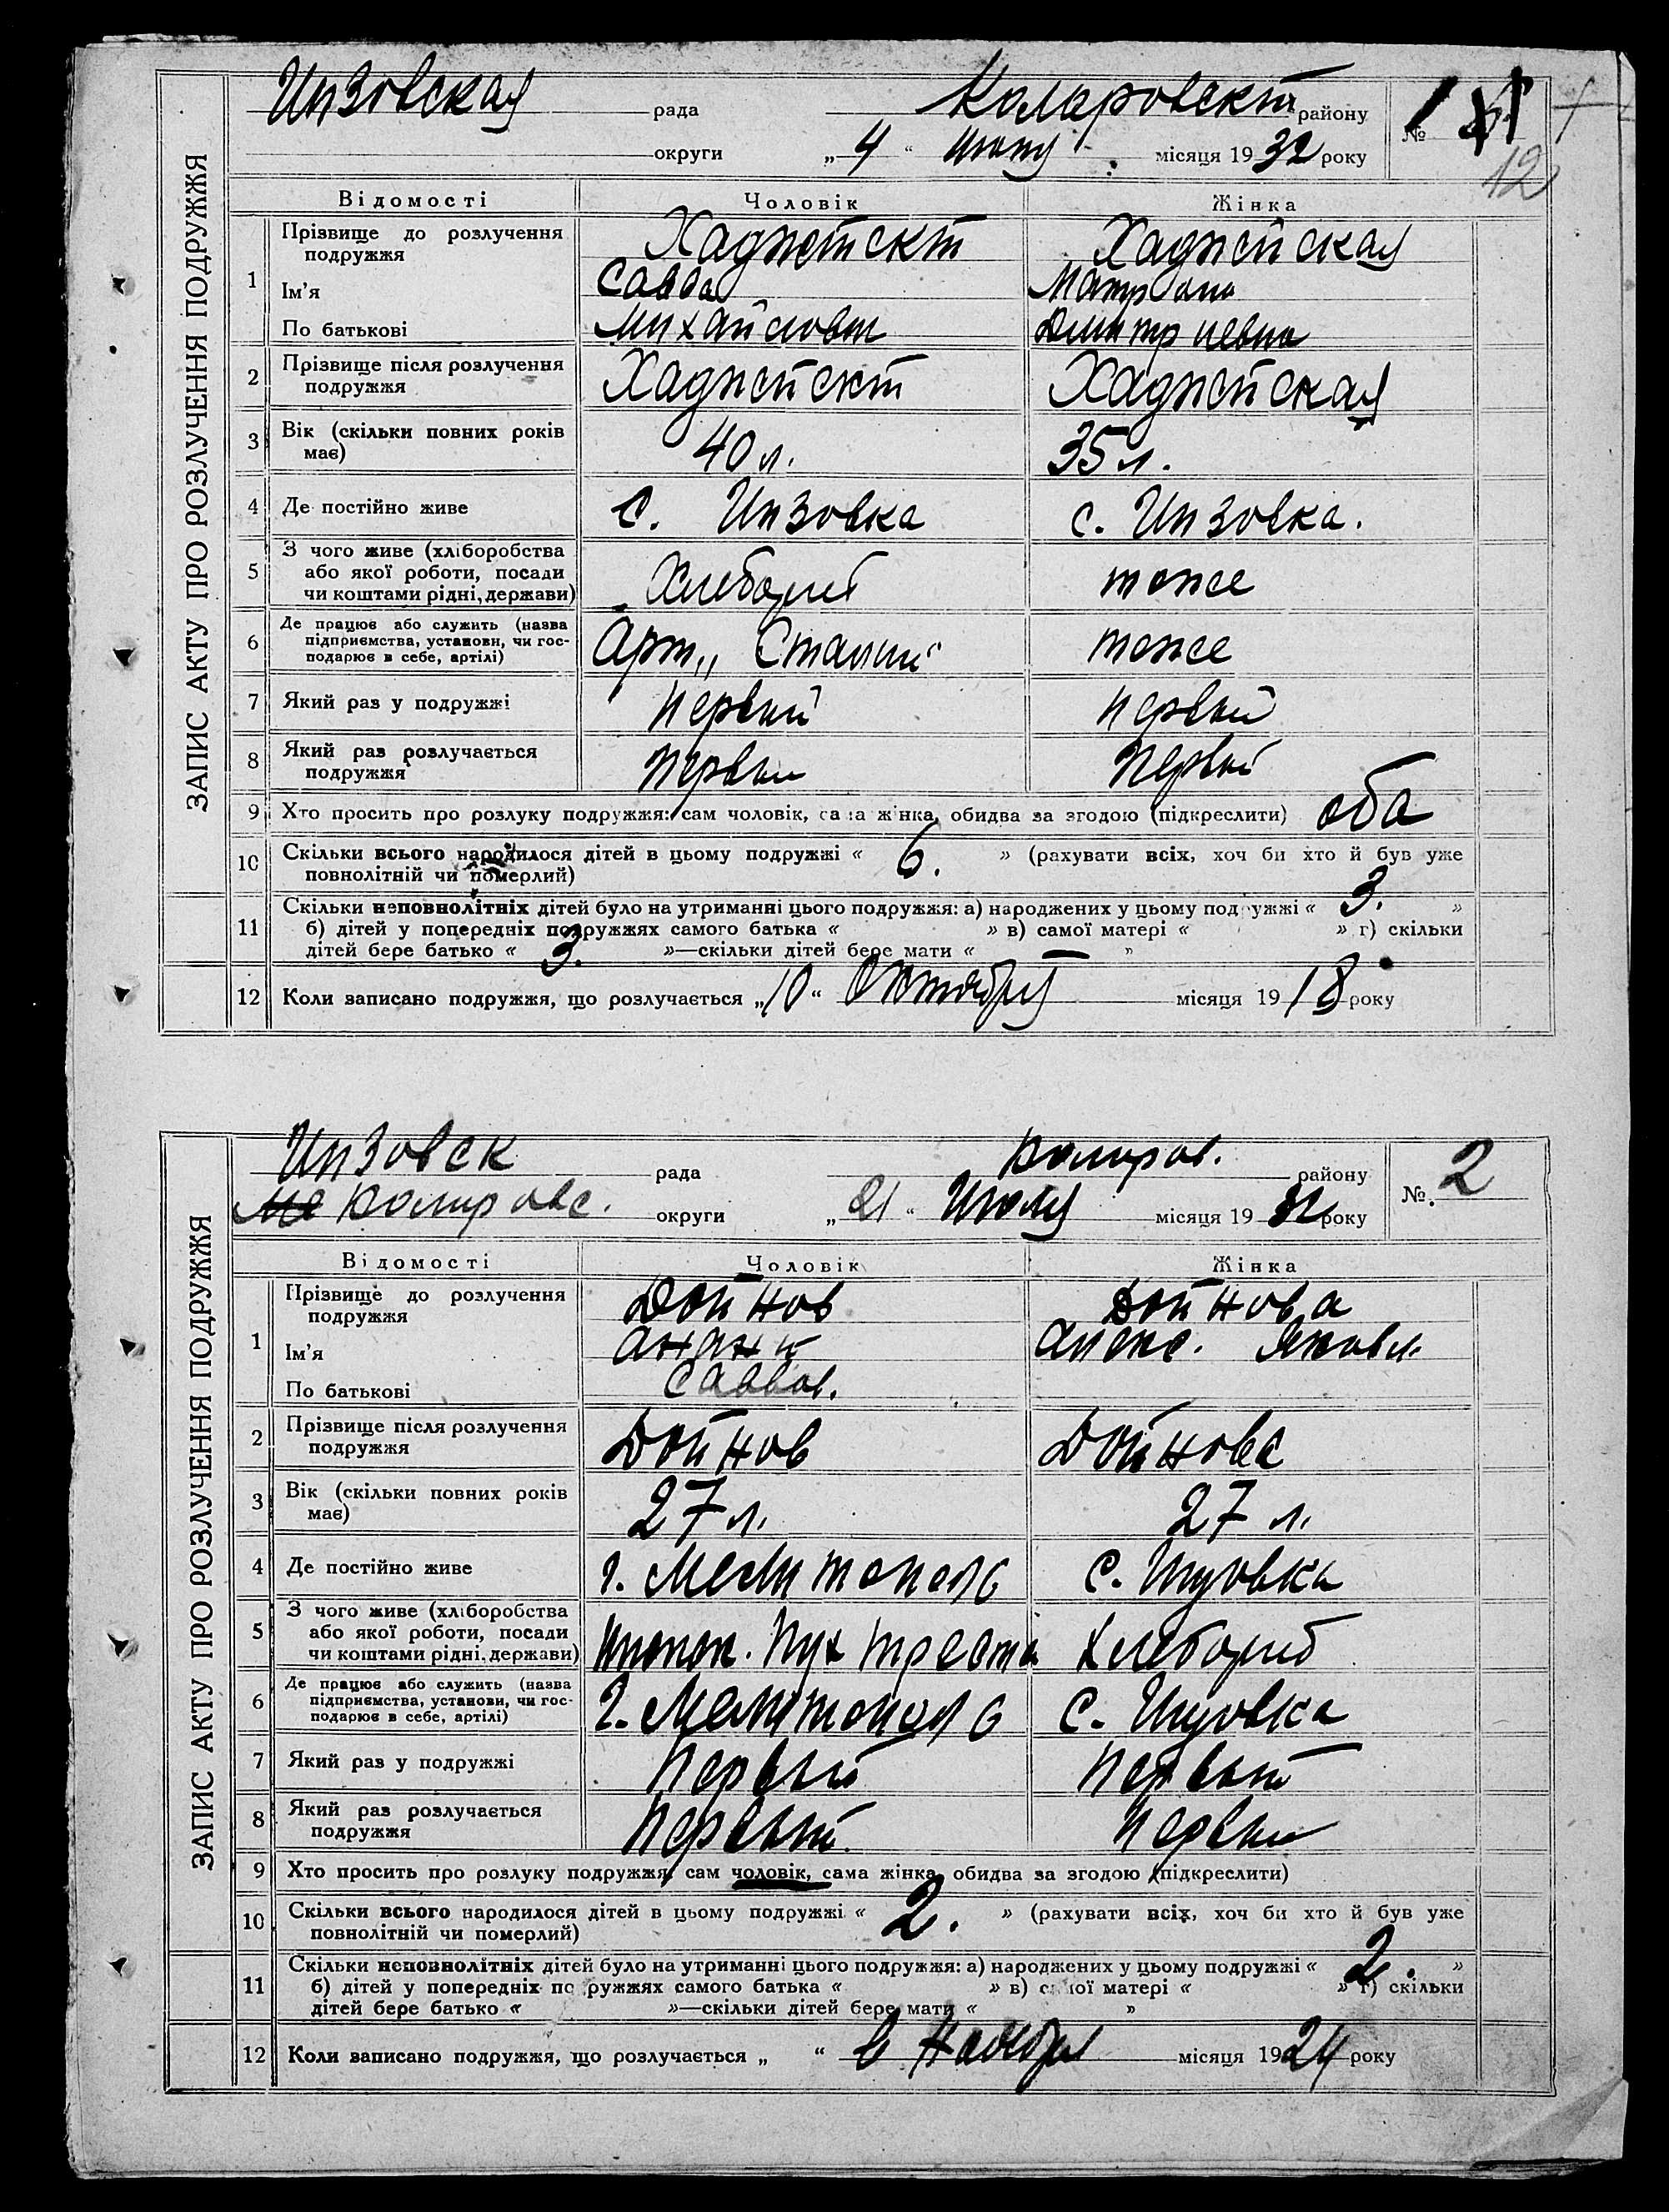 ЗАПИС АКТУ ПРО РОЗЛУЧЕННЯ ПОДРУЖЖЯ
Инзовская рада Коларовский району № 1
округи „4“ Июня місяця 1932 року
12
Відомості Чоловік Жінка
1 Прізвище до розлучення подружжя Хаджийский Хаджийская
Ім’я Савва Матрона
По батькові Михайлович Дмитриевна
2 Прізвище після розлучення подружжя Хаджийский Хаджийская
3 Вік (скільки повних років має) 40 л. 35 л.
4 Де постійно живе с. Инзовка с. Инзовка.
5 З чого живе (хліборобства або якої роботи, посади чи коштами рідні, держави) Хлебороб тоже
6 Де працює або служить (назва підприємства, установи, чи господарює в себе, артілі) Арт „Сталин“ тоже
7 Який раз у подружжі первый первый
8 Який раз розлучається подружжя первый первый
9 Хто просить про розлуку подружжя: сам чоловік, сама жінка, обидва за згодою (підкреслити) оба
10 Скільки всього народилося дітей в цьому подружжі « 6. » (рахувати всіх, хоч би хто й був уже
повнолітній чи померлий)
11 Скільки неповнолітніх дітей було на утриманні цього подружжя: а) народжених у цьому подружжі « 3. »
б) дітей у попередніх подружжях самого батька « » в) самої матері « » г) скільки
дітей бере батько « 3. »—скільки дітей бере мати « — »
12 Коли записано подружжя, що розлучається „10“ Октября місяця 1918 року
ЗАПИС АКТУ ПРО РОЗЛУЧЕННЯ ПОДРУЖЖЯ
Инзовск рада Колоров. району № 2
Коларовс. округи „21“ Июля місяця 1932 року
Відомості Чоловік Жінка
1 Прізвище до розлучення подружжя Дойнов Дойнова
Ім’я Анани Алекс. Яковл.
По батькові Саввов.
2 Прізвище після розлучення подружжя Дойнов Дойнова
3 Вік (скільки повних років має) 27 л. 27 л.
4 Де постійно живе г. Мелитополь с. Инзовка
5 З чого живе (хліборобства або якої роботи, посади чи коштами рідні, держави) треста Хлебороб
6 Де працює або служить (назва підприємства, установи, чи господарює в себе, артілі) г. Мелитополь с. Инзовка
7 Який раз у подружжі Первый Первый
8 Який раз розлучається подружжя Первый Первый
9 Хто просить про розлуку подружжя, сам чоловік, сама жінка, обидва за згодою (підкреслити)
10 Скільки всього народилося дітей в цьому подружжі « 2. » (рахувати всіх, хоч би хто й був уже
повнолітній чи померлий)
11 Скільки неповнолітніх дітей було на утриманні цього подружжя: а) народжених у цьому подружжі « 2. »
б) дітей у попередніх подружжях самого батька « » в) самої матері « » г) скільки
дітей бере батько « »—скільки дітей бере мати « »
12 Коли записано подружжя, що розлучається „ “ в Ноября місяця 1924 року